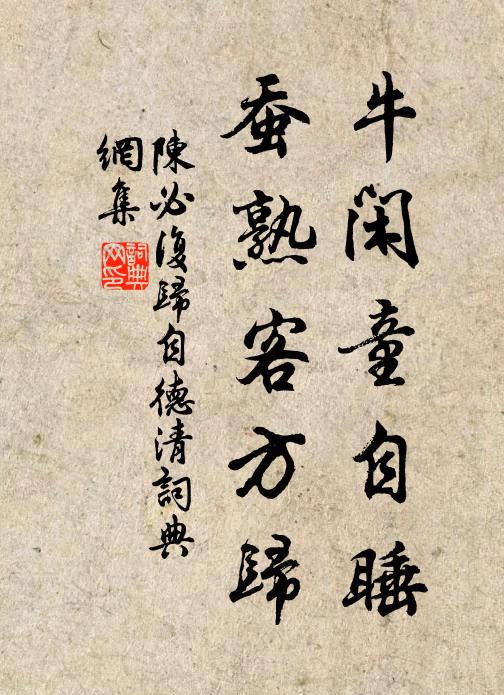 牛闲童自睡
蚕熟客方歸
陳必復歸自德清詞典
網集
詞典
网印